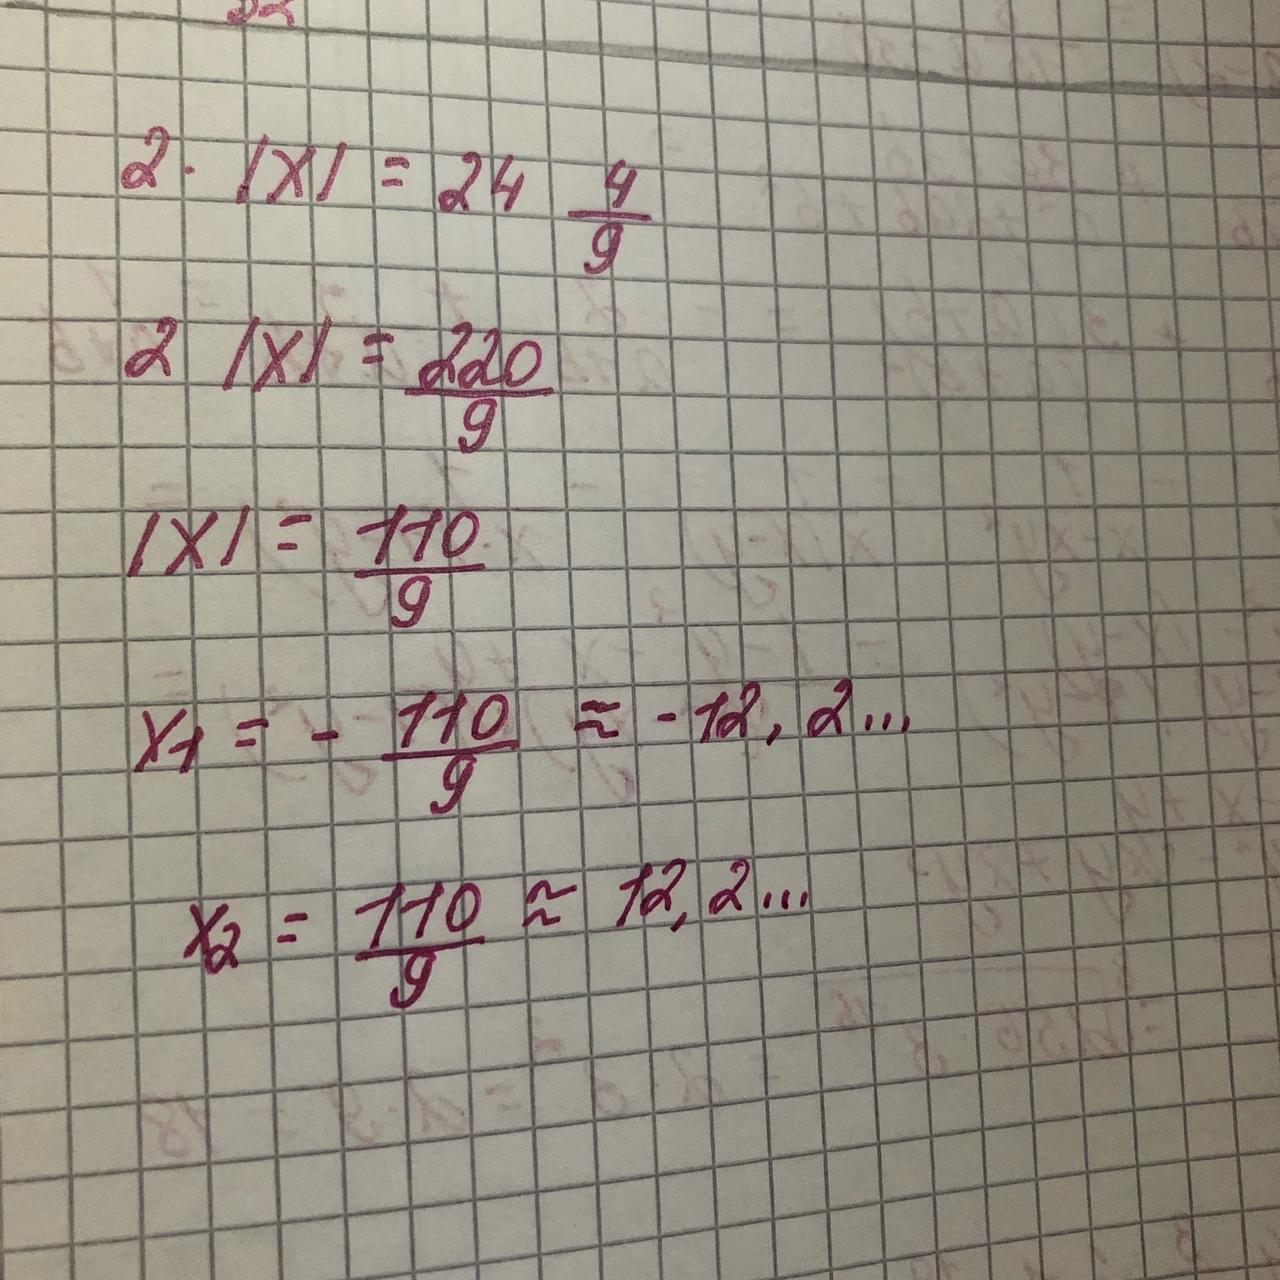 2 · |x| = 24 4/9
2 |x| = 220/9
|x| = 110/9
x1 = - 110/9 ≈ -12,2...
x2 = 110/9 ≈ 12,2...